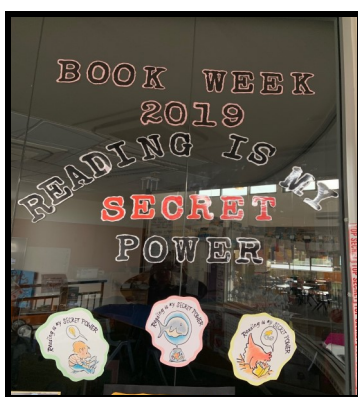 BOOK WEEK
2019
READING IS MY
SECRET
POWER
Reading is my SECRET POWER
Reading is my SECRET POWER
Reading is my SECRET POWER